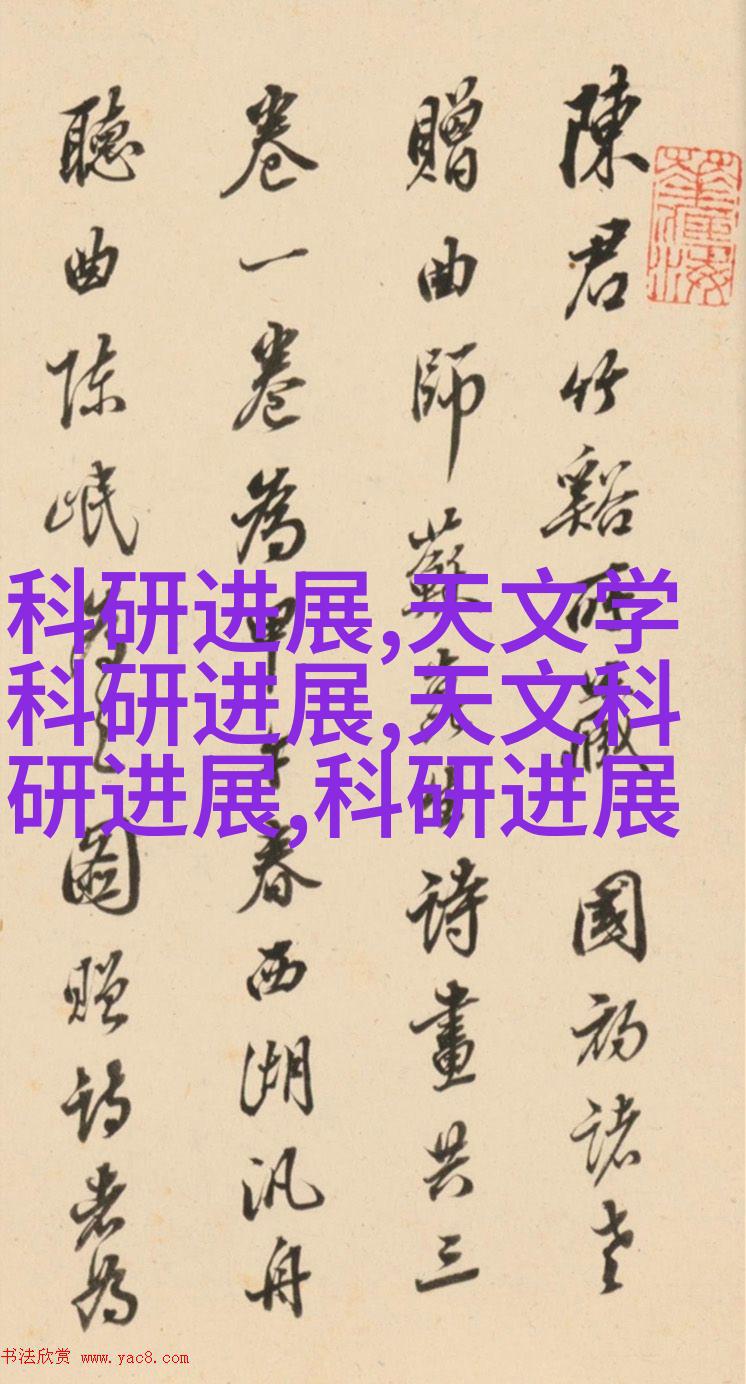 陳君竹谿所藏國初諸老
贈曲師蘇崑生詩畫共三
卷一卷為甲午春西湖汎舟
聽曲陳岷為之圖贈詩者為
科研进展,天文学
科研进展,天文科
研进展,科研进展
书法欣赏 www.yac8.com